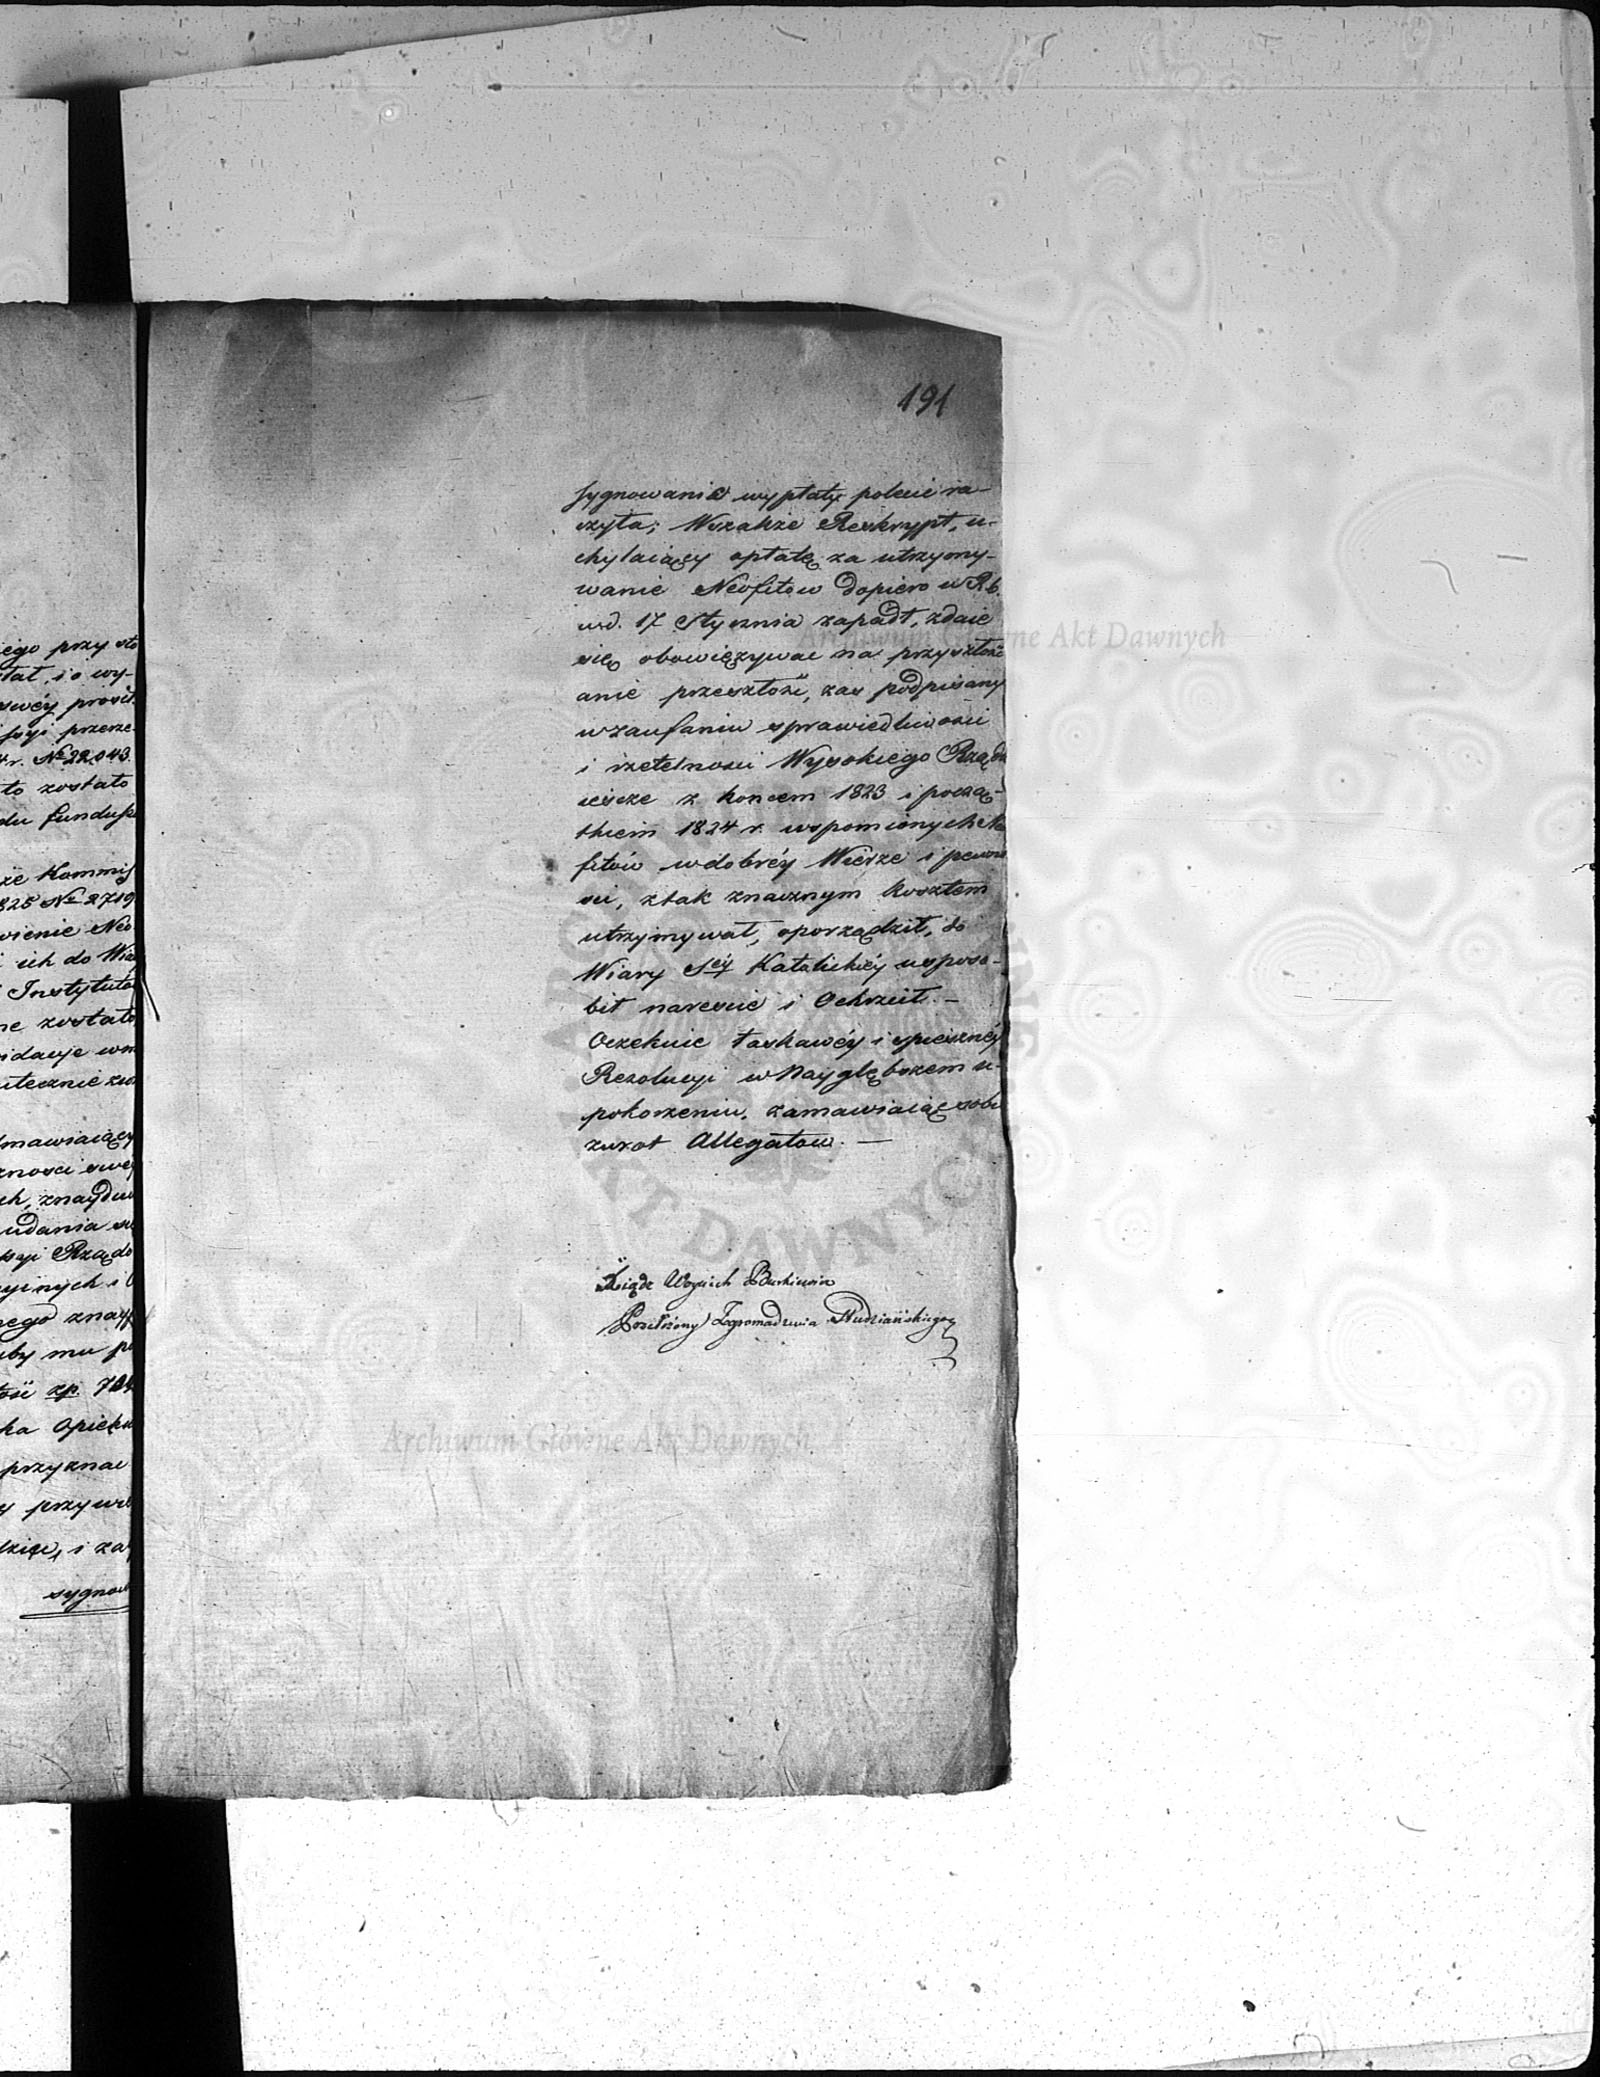 iego przy sto
tał, i o wy-
swéy prosił.
ssyi przerze-
4 r. № 22043.
to zostało
du fundusz
że Kommiss
825 № 2719
wienie Neo
ich do Wia
Instytuto
ne zostało
widacje
utecznie
mawiaiący
zności swéy
ch, znaydu
udania
Rządo
yinych i
nego znay
by mu
zp. 724
ka Opieku
przyznać
przywró
dzie, i za
sygnow
191
sygnowanie wypłaty polecić ra-
czyła; Wszakże Reskrypt, u-
chylaiący opłatę za utrzymy-
wanie Neofitow dopiero w R. b.
w d. 17 Stycznia zapadł, zdaie
się obowięzywać na przyszłość
a nie przeszłość, zas podpisany
w zaufaniu sprawiedliwości
i rzetelnosci Wysokiego Rządu
ieszcze z koncem 1823 i począ-
tkiem 1824 r. wspomionych Neo
fitów w dobréy Wierze i pewno
sci, z tak znacznym kosztem
utrzymywał, oporządził, do
Wiary Sēy Katolickiéy usposo-
bił nareście i Ochrzcił. —
Oczekuie łaskawéy i spieszney
Rezolucyi w Naygłębszem u-
pokorzeniu, zamawiaiąc sobie
zwrot Allegatow. —
Xiądz Woyciech Burkiewicz
Przełożony Zgromadzenia Studziańskiego
Archiwum Główne Akt Dawnych
Archiwum Główne Akt Dawnych